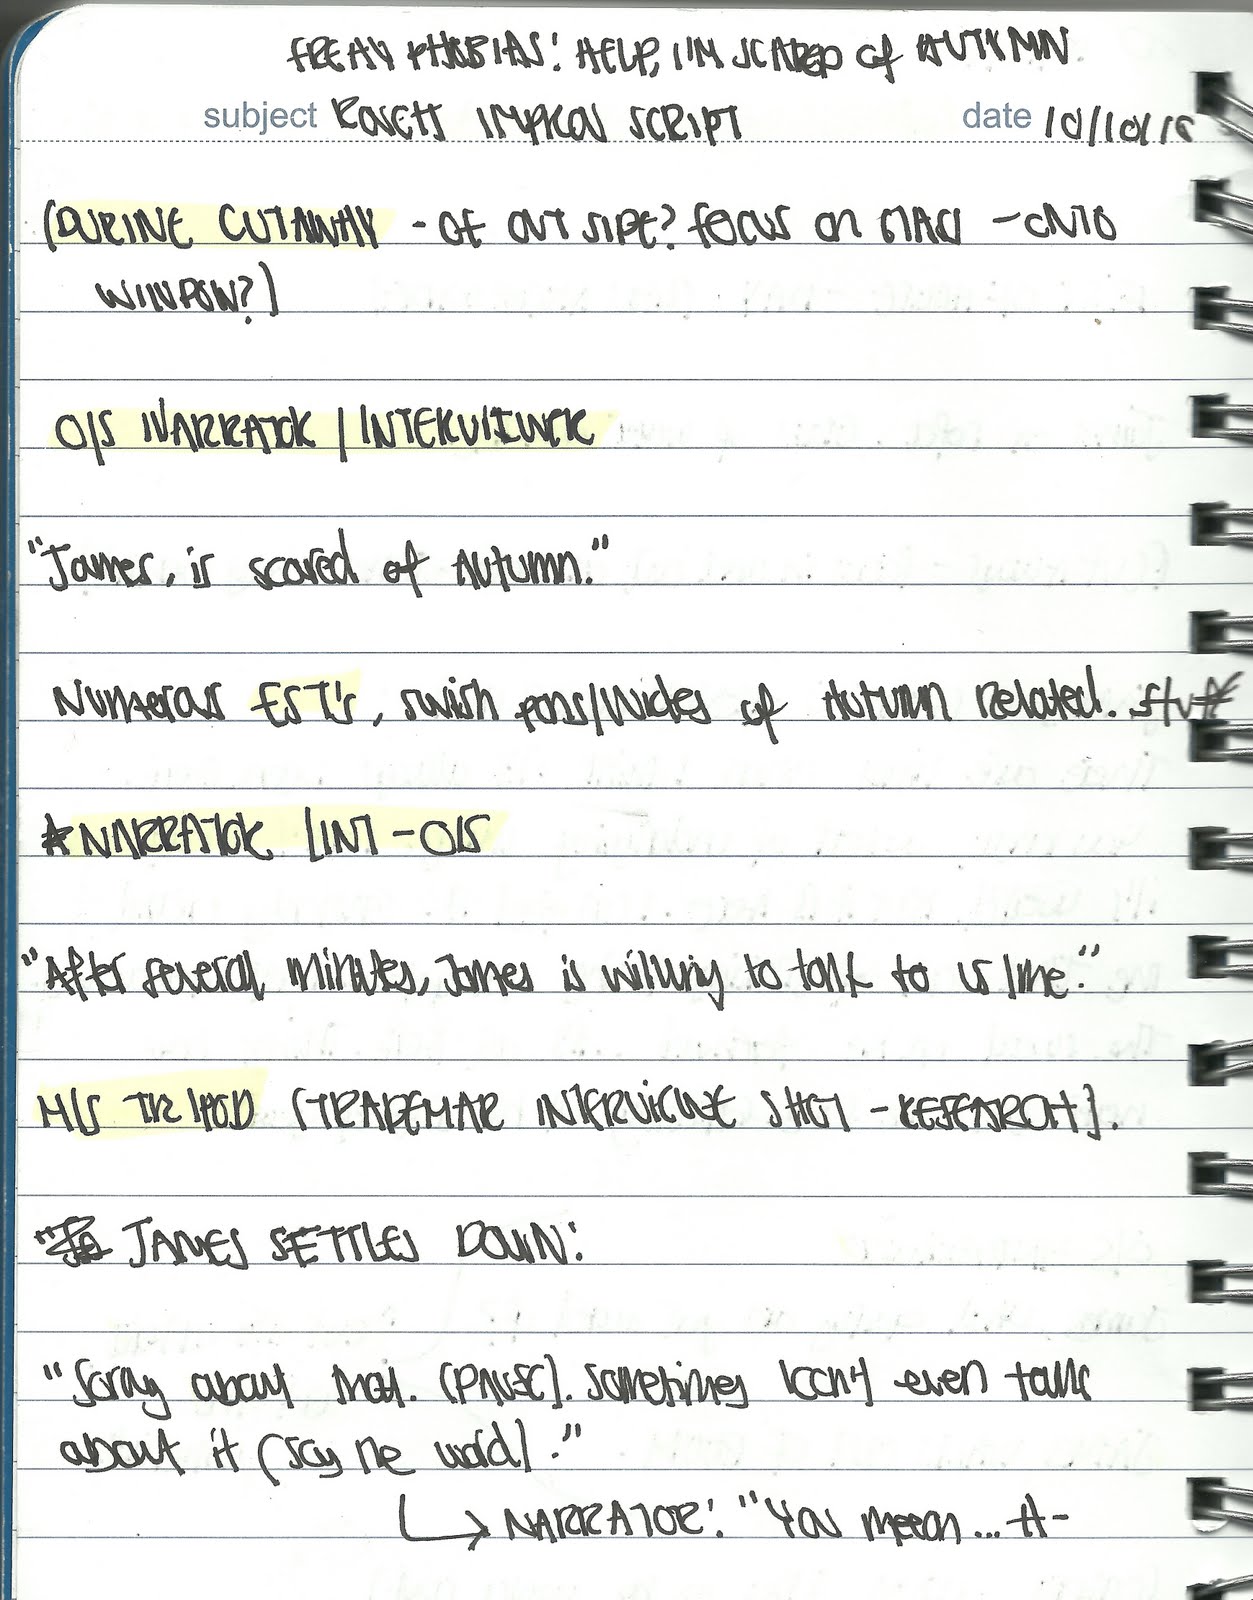 FREAKY PHOBIAS: HELP, I'M SCARED of AUTUMN
subject ROUGH IMPROV SCRIPT date 10/10/15
(DURING CUTAWAY - OF OUTSIDE? focus on MAC - ONTO
WINDOW?)
O/S NARRATOR / INTERVIEWER
"James, is scared of Autumn."
Numerous EST's, swish pans/Wides of Autumn Related. stuff
*NARRATOR / INT - O/S
"After several minutes, James is willing to talk to us/me."
M/S TRIPOD (TRADEMAR INTERVIEWE SHOT - RESEARCH).
" JAMES SETTLES DOWN:
"Soray about that. (PAUSE). sometimes I can't even talk
about it (say the word)."
NARRATOR: "You mean... A-